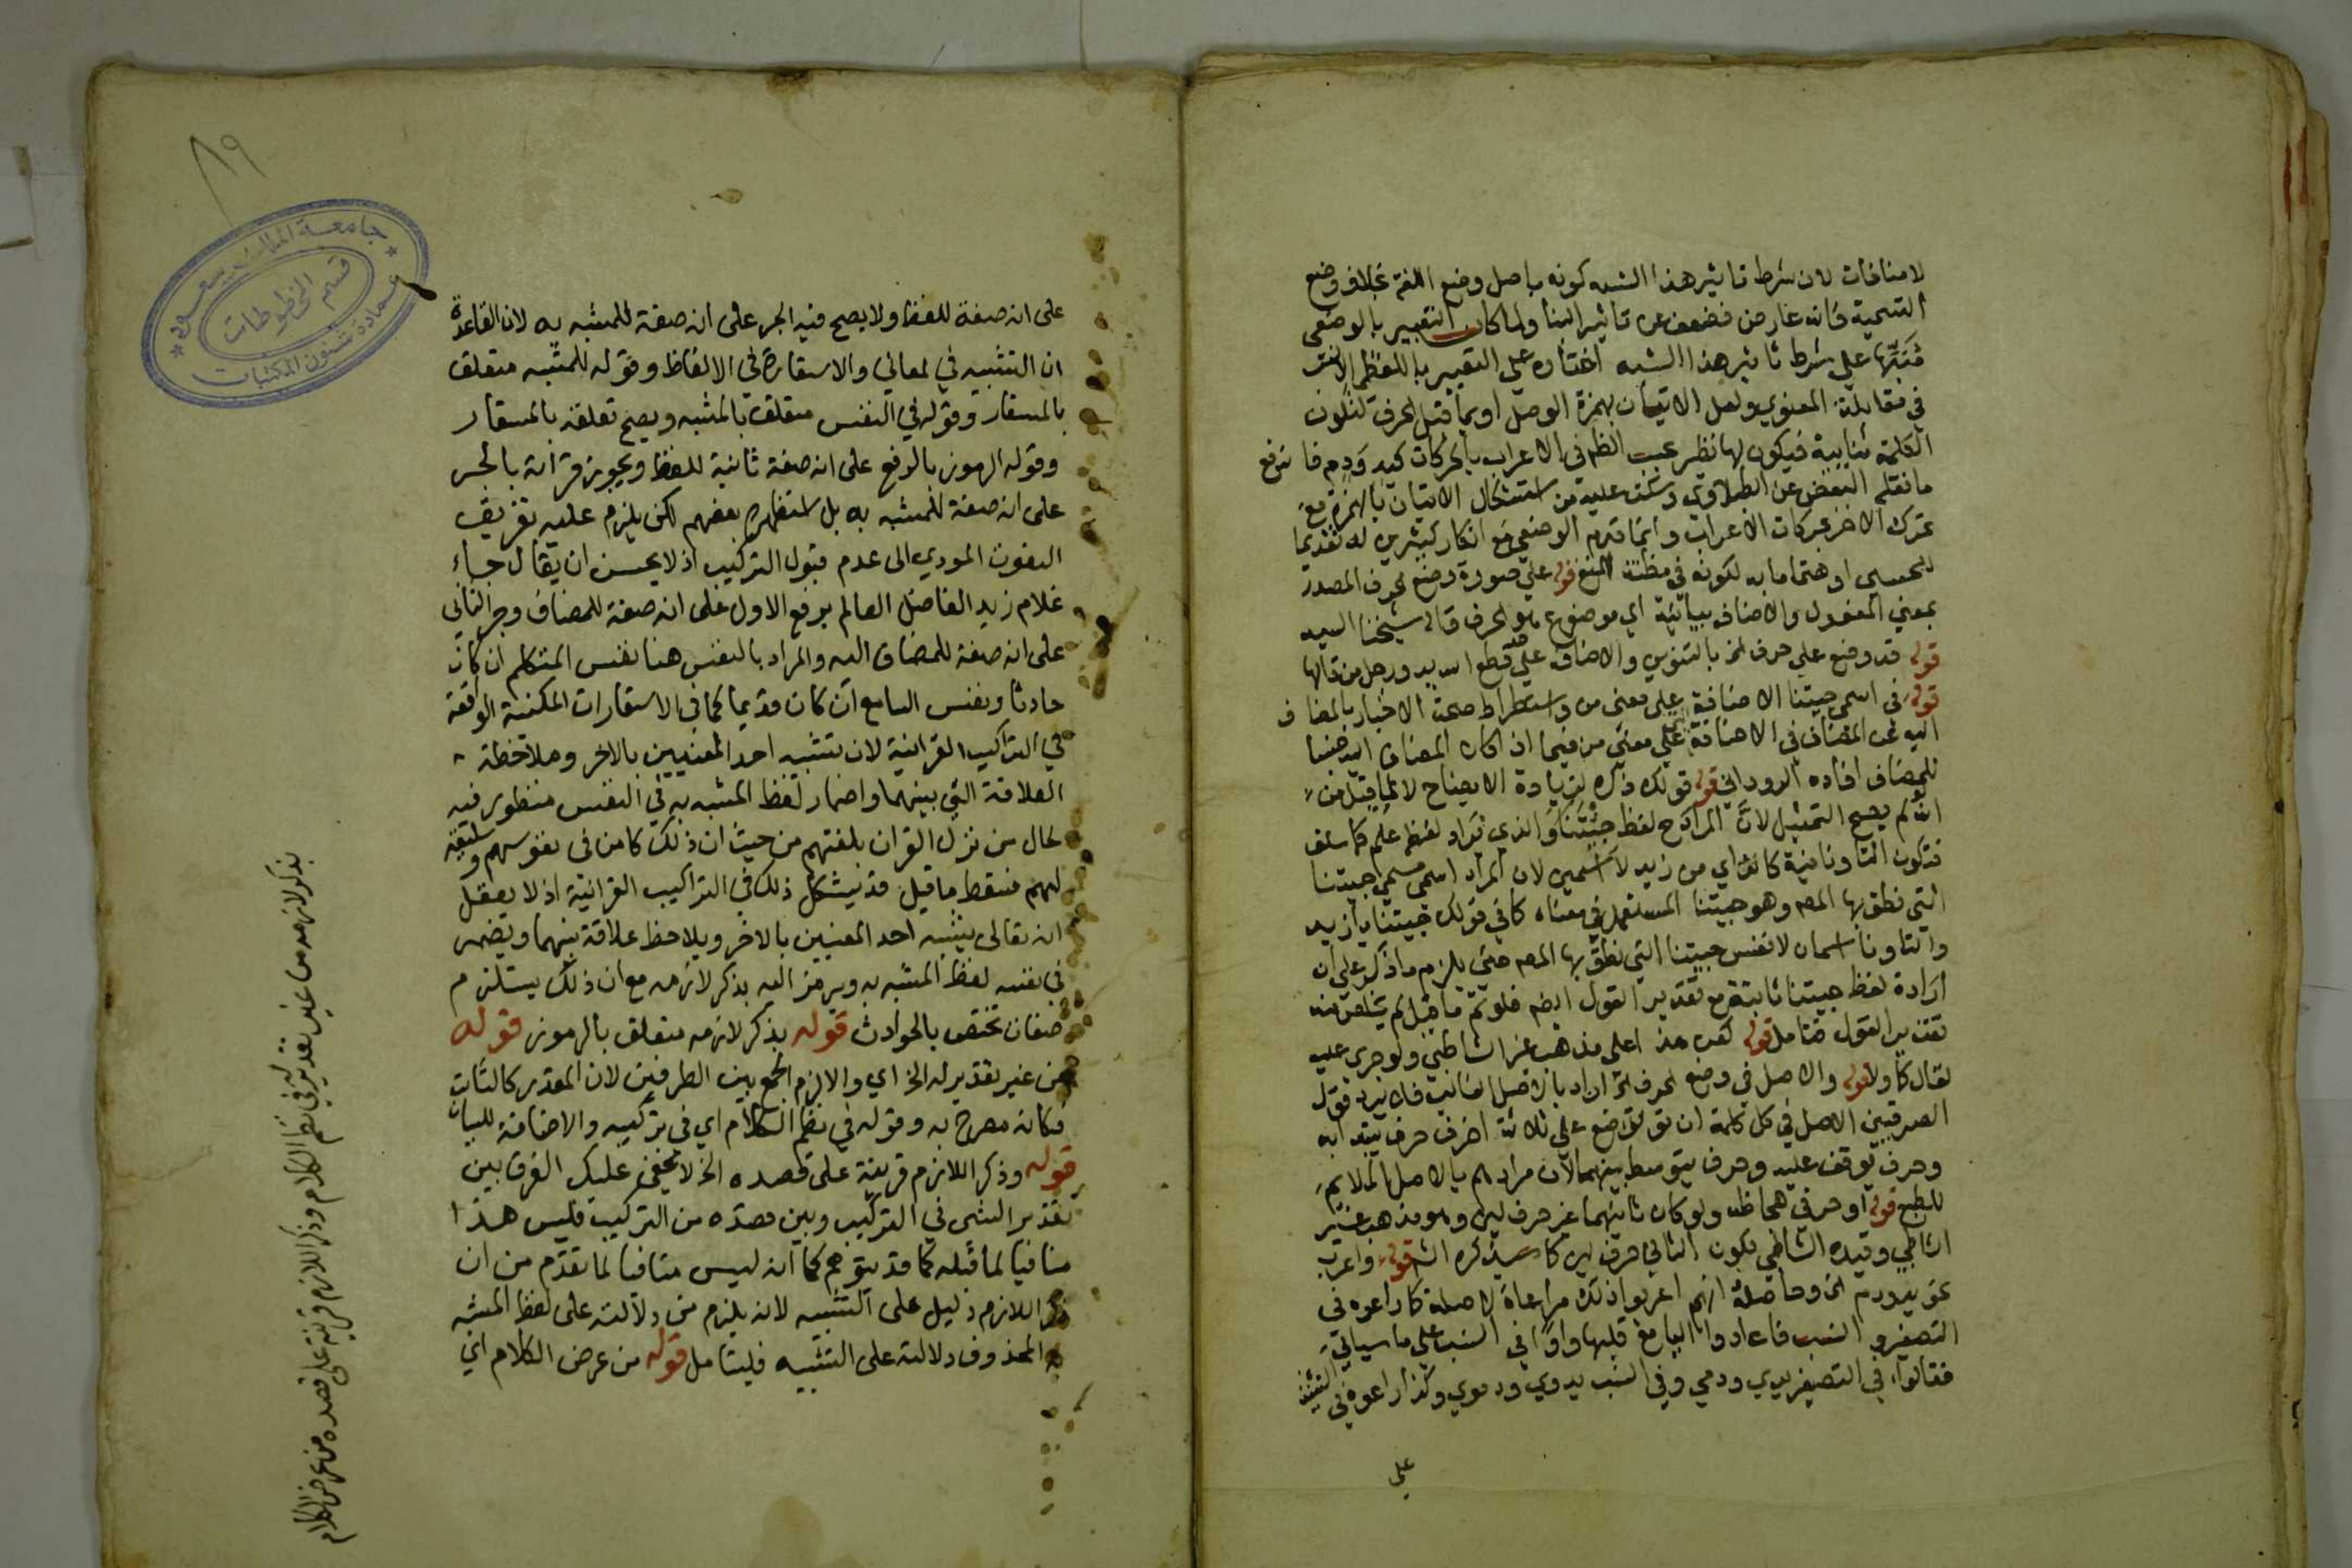 لامنافات لان شرط تاثير هذا الشبه كونه باصل وضع اللغة بخلاف وضع
التسمية فانه عارض فضعف عن تاثير البنا ولما كان التعبير بالوضعي
منبها على شرط تاثير هذا الشبه اختاره على التعبير باللفظي
في مقابلة المعنوي ولعل الاتيان بهمزة الوصل او بما قبل الحرف لتكون
الكلمة ثنايية فيكون لها نظير في الاعراب بالحركات كيد ودم
ما نقله البعض عن الطبلاوي وسكت عليه من استشكال الاتيان بالهمزة مع
تحرك الاخر بحركات الاعراب وانما قدم الوضعي مع انكار كثيرين له تقديما
للحسي او هتماما به لكونه في مظنة المنع قوله على صورة وضع الحرف المصدر
بمعني المفعول والاضافة بيانية اي موضوع هو الحرف قاله شيخنا السيد
قوله قد وضع على حرف الخ بالتنوين والاضافة على حد قطع الله يد ورجل من قالها
قوله في اسمي جيتنا الاضافة على معني من واشتراط صحة الاخبار بالمضاف
اليه عن المضاف في الاضافة على معني من فيما اذا كان المضاف اليه جنسا
للمضاف افاده الروداني قوله قولك ذكره لزيادة الايضاح لا لما قيل من
انه لم يصح التمثيل لان المراد ح لفظ جئتنا والذي يراد لفظه علم كما سلف
فتكون التا ونا منه كالزاي من زيد لا اسمين لان المراد اسمي مسمى جيتنا
التي نطق بها المص وهو جيتنا المستعمل في معناه كما في قولك جيتنا يا زيد
والتا ونا اسمان لا نفس جيتنا التي نطق بها المص حتى يلزم ما ذكر على ان
ارادة لفظ جيتنا ثابتة مع تقدير القول ايضا فلو تم ما قيل لم يخلص منه
تقدير القول فتامل قوله هذا على مذهب غير الشاطبي ولو جرى عليه
لقال كما ولا قوله والاصل في وضع الحرف الخ اراد بالاصل الغالب فلا يرد قول
الصرفيين الاصل في كل كلمة ان توضع على ثلاثة احرف حرف يبتدا به
وحرف يوقف عليه وحرف يتوسط بينهما لان مرادهم بالاصل الملايم
للطبع قوله او حرفي هجا ظ ولو كان ثانيهما غير حرف لين وهو مذهب غير
الشاطبي وقيده الشاطبي بكون الثاني حرف لين كما سيذكره الش قوله واعرب
نحو يد ودم الخ وحاصله انهم اعربوا ذلك مراعاة لاصله كما راعوه في
التصغير والنسب فاعادوا اليا مع قلبها واوا في النسب على ما سياتي
فقالوا في التصغير يدي ودمي وفي النسب يدوي ودموي وكذا راعوه في التثنية
على
٨٩
جامعة الملك سعود
قسم المخطوطات
عمادة شئون المكتبات
على انه صفة للفظ ولا يصح فيه الجر على انه صفة للمشبه به لان القاعدة
ان التشبيه في المعاني والاستعارة في الالفاظ وقوله للمشبه متعلق
بالمستعار وقوله في النفس متعلق بالمشبه ويصح تعلقه بالمستعار
وقوله المرموز بالرفع على انه صفة ثانية للفظ ويجوز قراءته بالجر
على انه صفة للمشبه به بل استظهره بعضهم لكن يلزم عليه تفريق
النعوت المودي الى عدم قبول التركيب اذ لا يحسن ان يقال جاء
غلام زيد الفاضل العالم برفع الاول على انه صفة للمضاف وجر الثاني
على انه صفة للمضاف اليه والمراد بالنفس هنا نفس المتكلم ان كان
حادثا ونفس السامع ان كان قديما كما في الاستعارات المكنية الواقعة
في التراكيب القرانية لان تشبيه احد المعنيين بالاخر وملاحظة
العلاقة التي بينهما واضمار لفظ المشبه به في النفس منظور فيه
لحال من نزل القران بلغتهم من حيث ان ذلك كامن في نفوسهم وسليقة
لهم فسقط ما قيل قد يشكل ذلك في التراكيب القرانية اذ لا يعقل
انه تعالى يشبه احد المعنيين بالاخر ويلاحظ علاقة بينهما ويضمر
في نفسه لفظ المشبه به ويرمز اليه بذكر لازمه مع ان ذلك يستلزم
صفات تختص بالحوادث قوله بذكر لازمه متعلق بالمرموز قوله
من غير تقدير له الخ اي والا لزم الجمع بين الطرفين لان المقدر كالثابت
فكانه مصرح به وقوله في نظم الكلام اي في تركيبه والاضافة للبيان
قوله وذكر اللازم قرينة على قصده الخ لا يخفى عليك الفرق بين
تقدير الشى في التركيب وبين قصده من التركيب فليس هذا
منافيا لما قبله كما قد يتوهم كما انه ليس منافيا لما تقدم من ان
ذكر اللازم دليل على التشبيه لانه يلزم من دلالته على لفظ المشبه
المحذوف دلالته على التشبيه فليتامل قوله من عرض الكلام اي
بذكر لازمه من غير تقدير له في نظم الكلام وذكر اللازم قرينة على قصده من عرض الكلام